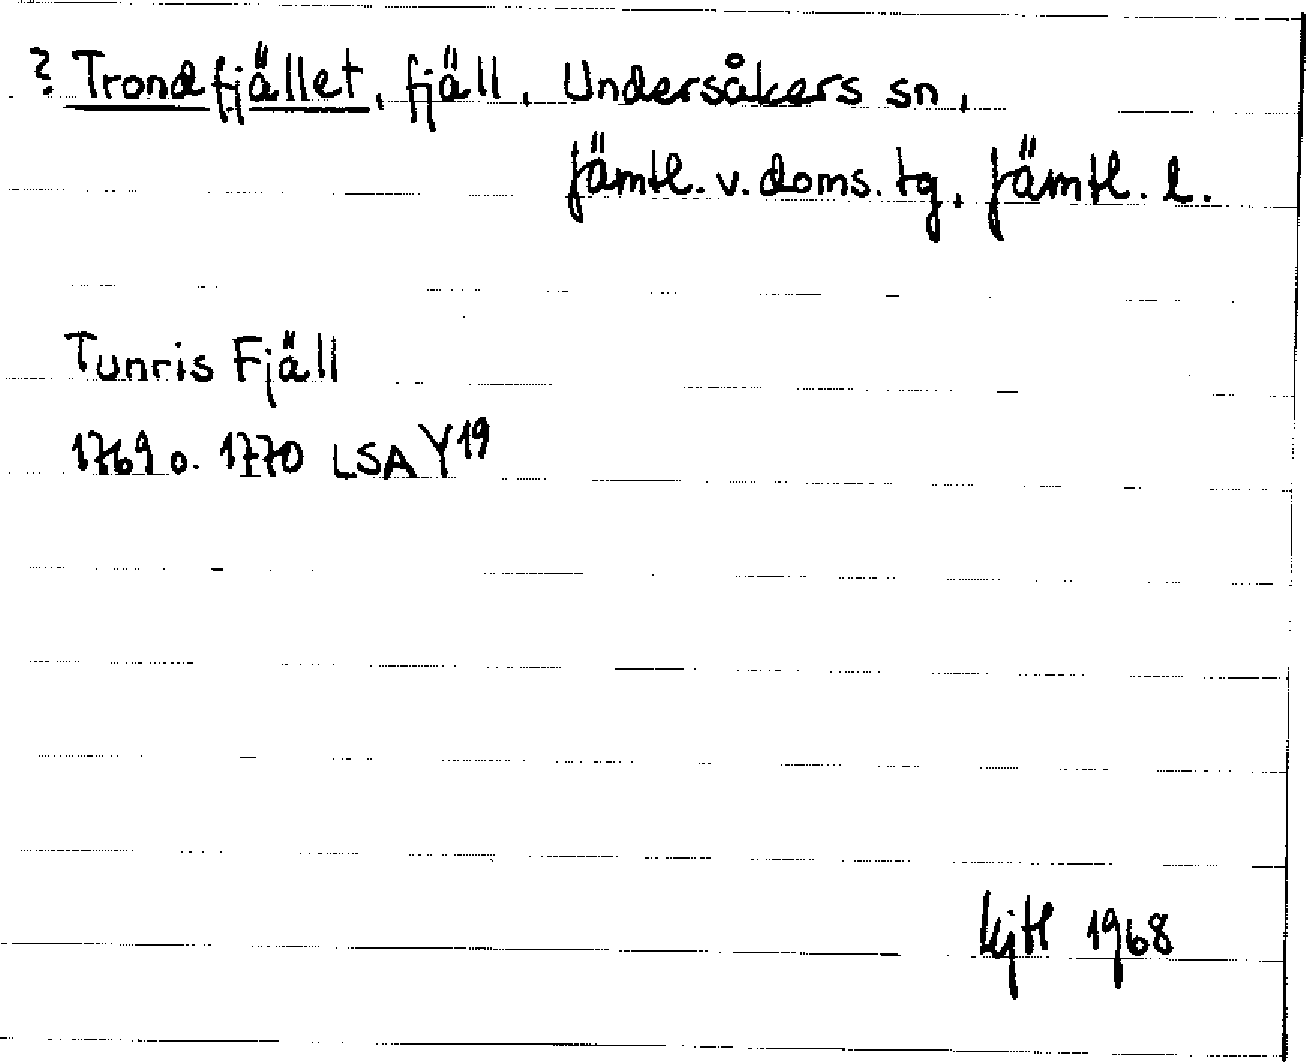 ? Trondfjället, fjäll, Undersåkers sn,
Jämtl. v. doms. tg, Jämtl. l.
Tunris Fjäll
1769 o. 1770 LSA Y19
1968